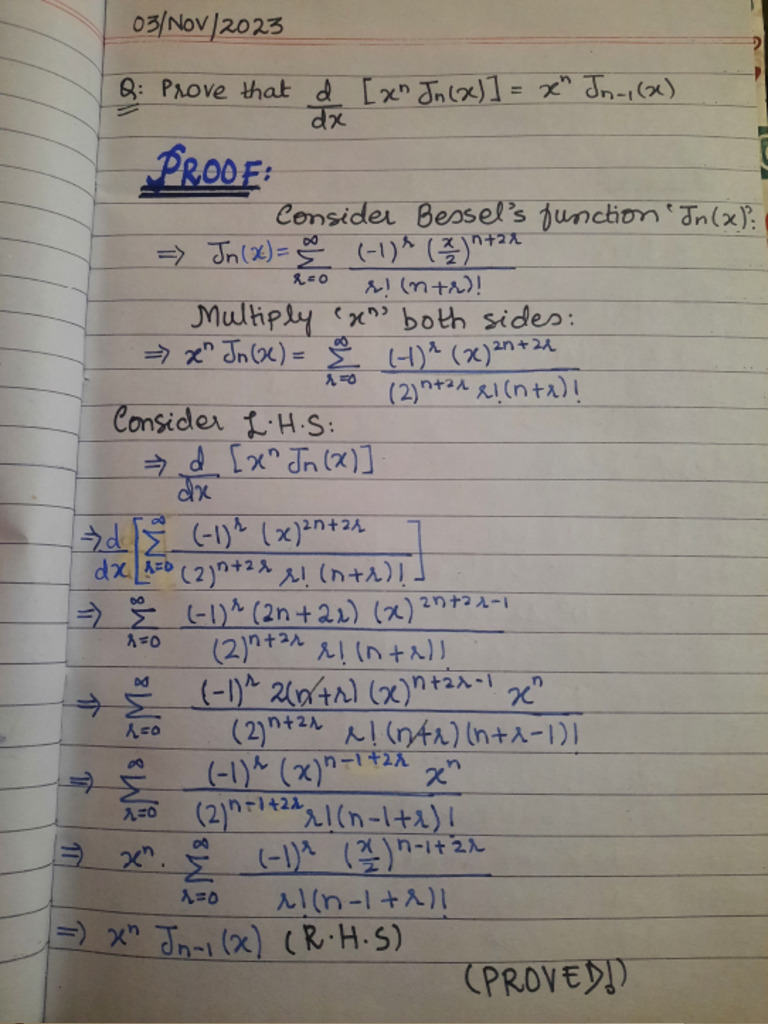 03/Nov/2023
Q: Prove that d/dx [xⁿ Jn(x)] = xⁿ Jn-1(x)
PROOF:
Consider Bessel's function 'Jn(x)':
⇒ Jn(x) = ∞Σr=0 (-1)^r (x/2)^(n+2r) / r! (n+r)!
Multiply 'xⁿ' both sides:
⇒ xⁿ Jn(x) = ∞Σr=0 (-1)^r (x)^(2n+2r) / (2)^(n+2r) r! (n+r)!
Consider L.H.S:
⇒ d/dx [xⁿ Jn(x)]
⇒ d/dx [∞Σr=0 (-1)^r (x)^(2n+2r) / (2)^(n+2r) r! (n+r)!]
⇒ ∞Σr=0 (-1)^r (2n+2r) (x)^(2n+2r-1) / (2)^(n+2r) r! (n+r)!
⇒ ∞Σr=0 (-1)^r 2(n+r) (x)^(n+2r-1) xⁿ / (2)^(n+2r) r! (n+r) (n+r-1)!
⇒ ∞Σr=0 (-1)^r (x)^(n-1+2r) xⁿ / (2)^(n-1+2r) r! (n-1+r)!
⇒ xⁿ. ∞Σr=0 (-1)^r (x/2)^(n-1+2r) / r! (n-1+r)!
⇒ xⁿ Jn-1(x) (R.H.S)
(PROVED!)